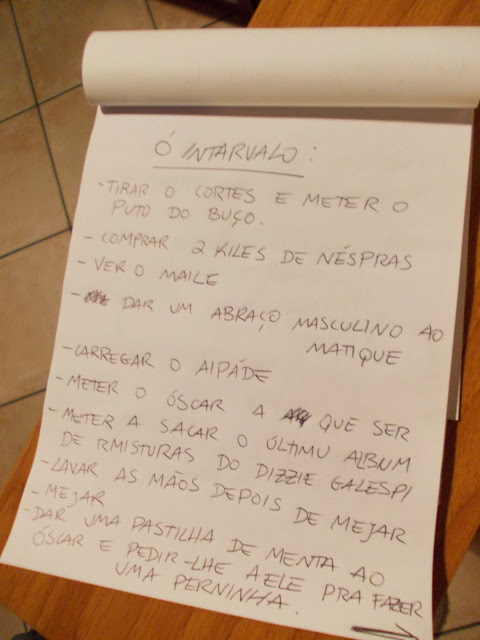 Ó INTARVALO:
- TIRAR O CORTES E METER O
PUTO DO BUÇO.
- COMPRAR 2 KILES DE NÉSPRAS
- VER O MAILE
- DAR UM ABRAÇO MASCULINO AO
MATIQUE
- CARREGAR O AIPÁDE
- METER O ÓSCAR A QUE SER
- METER A SACAR O ÚLTIMU ALBUM
DE RMISTURAS DO DIZZIE GALESPI
- LAVAR AS MÃOS DEPOIS DE MEJAR
- MEJAR
- DAR UMA PASTILHA DE MENTA AO
ÓSCAR E PEDIR-LHE A ELE PRA FAZER
UMA PERNINHA.